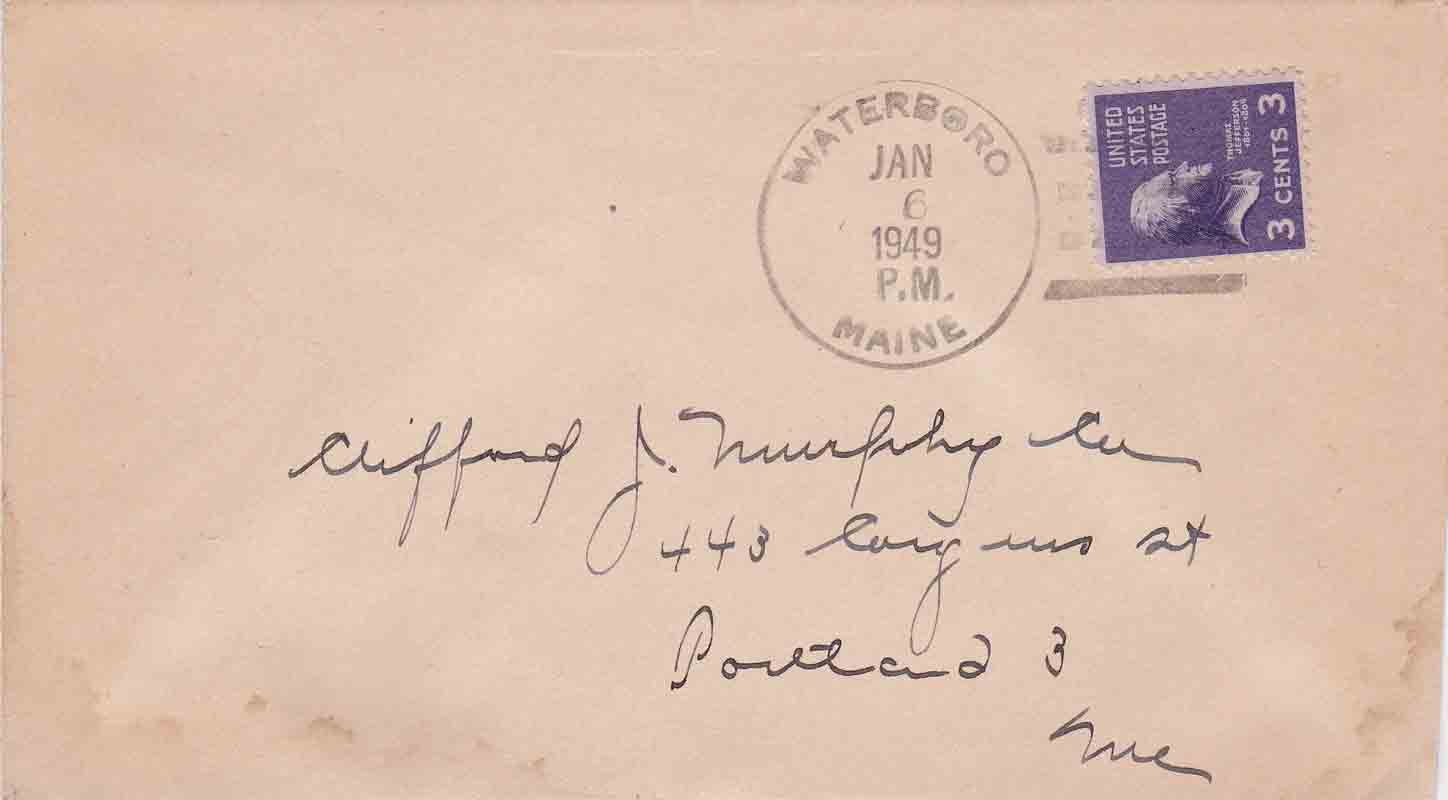 WATERBORO
JAN
6
1949
P.M.
MAINE
UNITED
STATES
POSTAGE
THOMAS
JEFFERSON
1801-1809
3 CENTS 3
Clifford J. Murphy Co
443 Congress st
Portland 3
Me